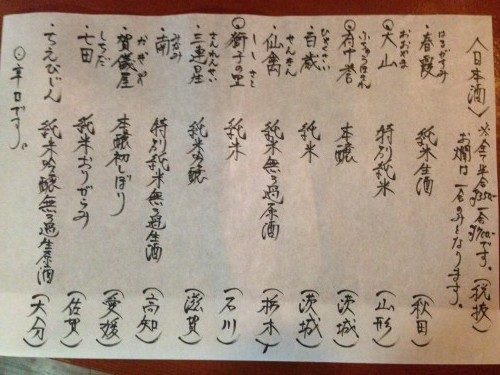 〈日本酒〉※全半合¥350- 一合¥700-です。(税抜)
お燗は一合のみとなります。
はるがすみ
・春霞 純米生酒 (秋田)
おおやま
◎大山 特別純米 (山形)
ふちゅうほまれ
◎府中誉 本醸 (茨城)
ひゃくさい
・百歳 純米 (茨城)
せんきん
・仙禽 純米無ろ過原酒 (栃木)
ししのさと
◎獅子の里 純米 (石川)
さんれんせい
・三連星 純米吟醸 (滋賀)
みなみ
・南 特別純米無ろ過生酒 (高知)
かぎや
・賀儀屋 本醸初しぼり (愛媛)
しちだ
・七田 純米おりがらみ (佐賀)
・ちえびじん 純米吟醸無ろ過生原酒 (大分)
◎辛口です。